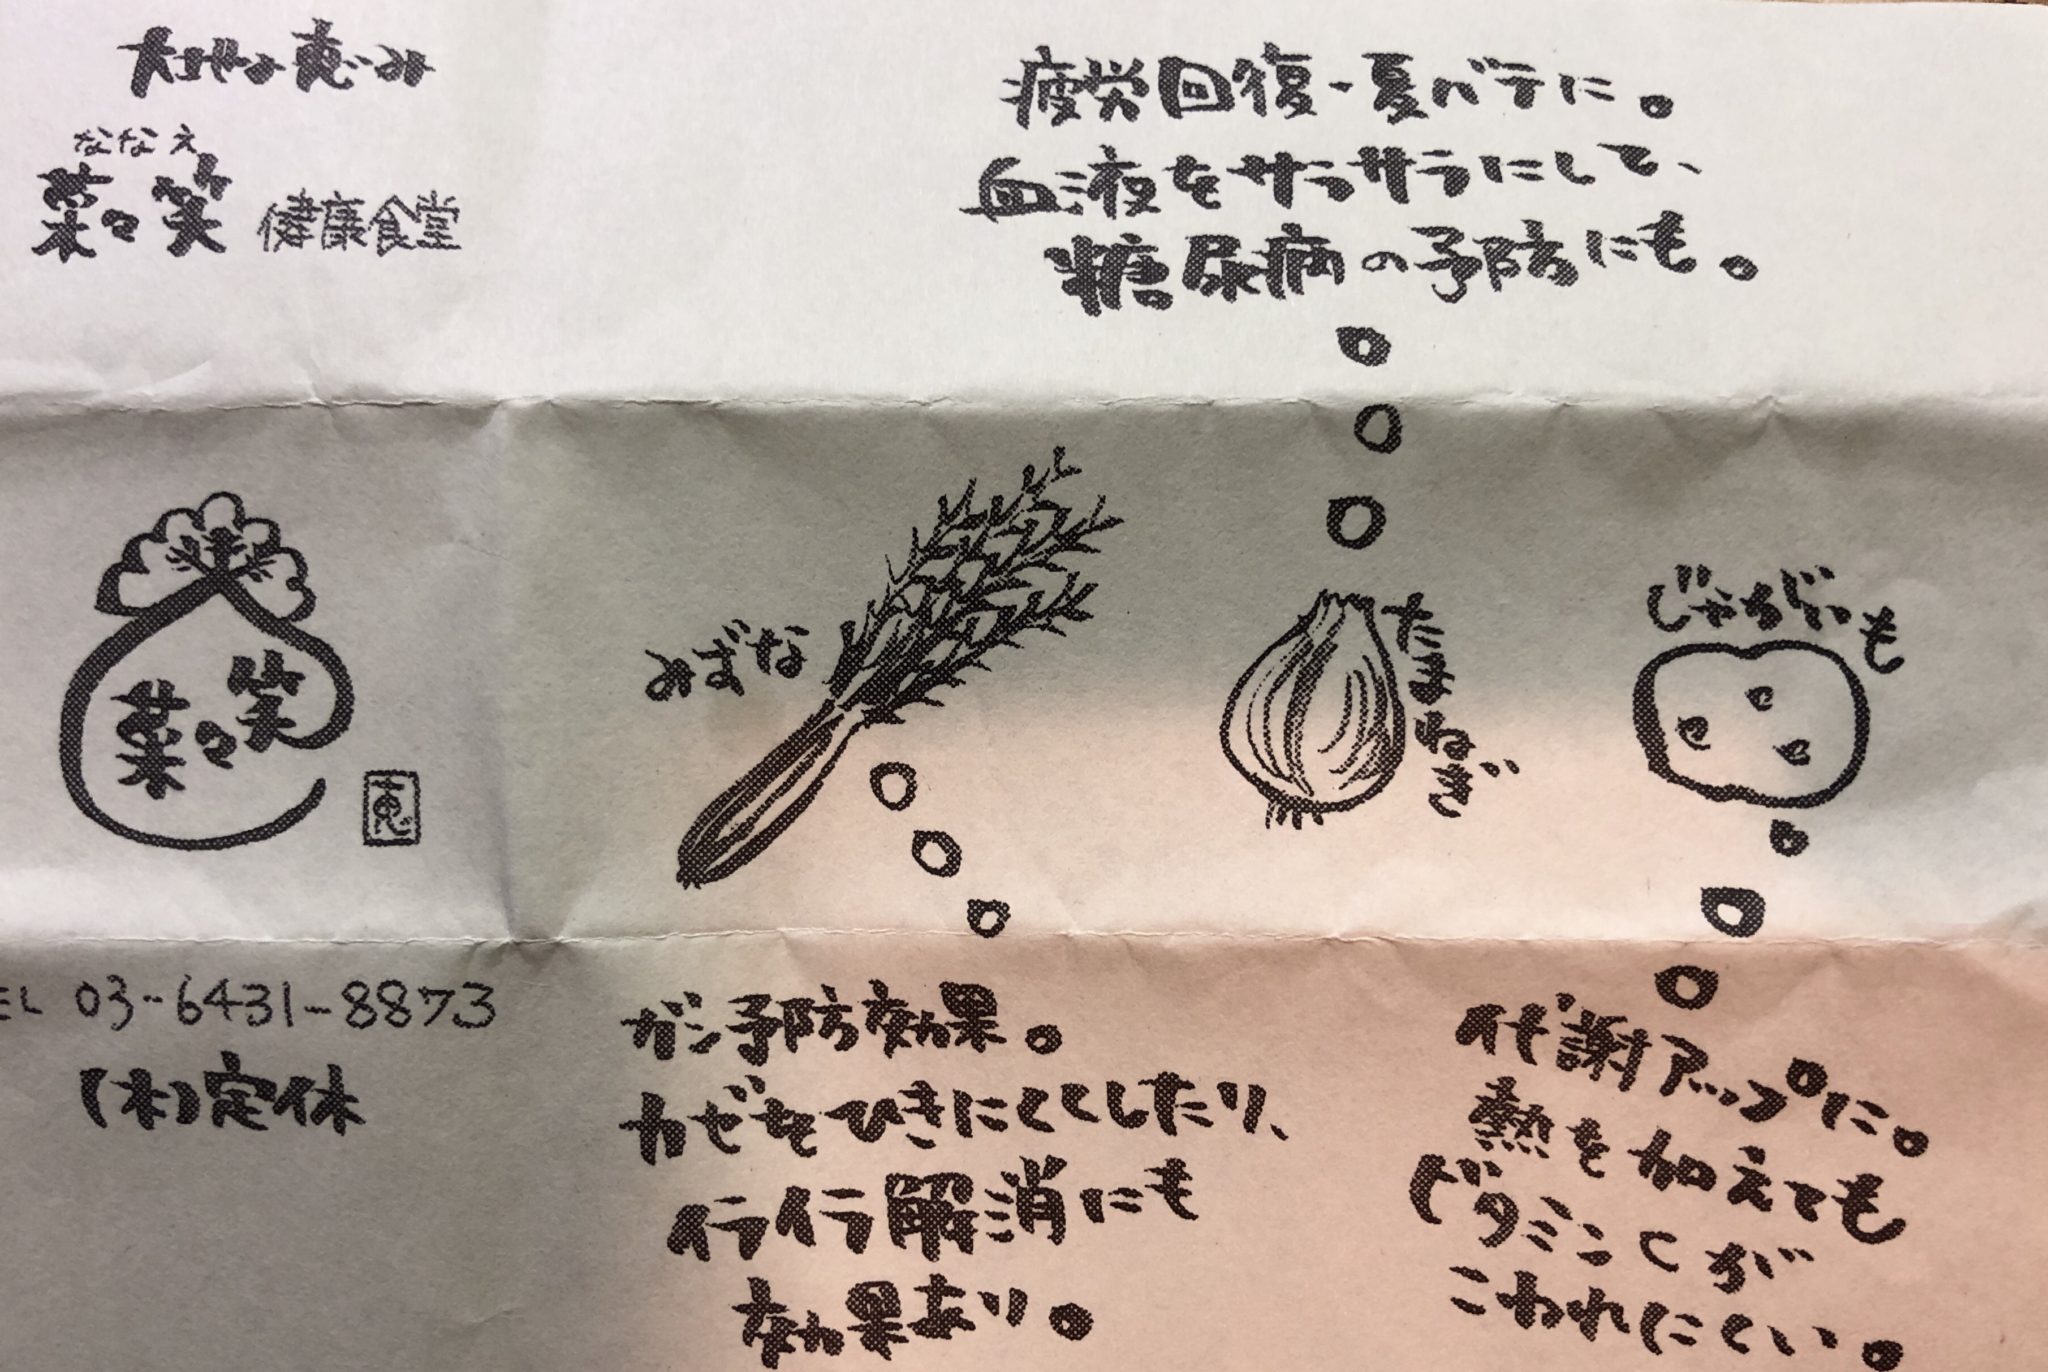 恵み
ななえ
菜々笑 健康食堂
菜々笑
恵
EL 03-6431-8873
(木)定休
疲労回復・夏バテに。
血液をサラサラにして、
糖尿病の予防にも。
みずな
たまねぎ
じゃがいも
ガン予防効果。
カゼをひきにくくしたり、
イライラ解消にも
効果あり。
代謝アップに。
熱を加えても
ビタミンCが
こわれにくい。